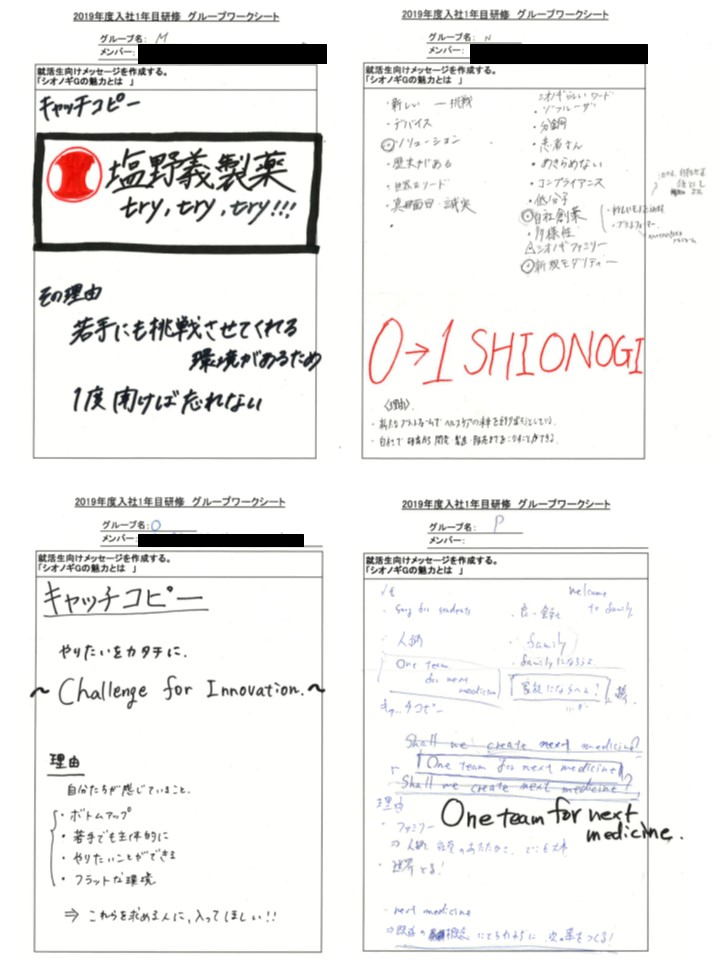 2019年度入社1年目研修 グループワークシート
グループ名: M
メンバー:
就活生向けメッセージを作成する。
「シオノギGの魅力とは 」
キャッチコピー
塩野義製薬
try, try, try!!!
その理由
若手にも挑戦させてくれる
環境があるため
1度聞けば忘れない
2019年度入社1年目研修 グループワークシート
グループ名: N
メンバー:
就活生向けメッセージを作成する。
「シオノギGの魅力とは 」
・新しい 一 挑戦
・デバイス
・ソリューション
・歴史がある
・真面目・誠実
・
シオノギらしいワード
・ゾフルーザ
・分銅
・患者さん
・あきらめない
・コンプライアンス
・低分子
・自社創薬
・多様性
シオノギファミリー
・新規モダリティー
0→1 SHIONOGI
〈理由〉
・自社で研究から開発・製造・販売まで
2019年度入社1年目研修 グループワークシート
グループ名: O
メンバー:
就活生向けメッセージを作成する。
「シオノギGの魅力とは 」
キャッチコピー
やりたいをカタチに.
～Challenge for Innovation.～
理由
自分たちが感じていること.
・ボトムアップ
・若手でも主体的に
・やりたいことができる
・フラットな環境
⇒ これらを求める人に,入ってほしい!!
2019年度入社1年目研修 グループワークシート
グループ名: P
メンバー:
就活生向けメッセージを作成する。
「シオノギGの魅力とは 」
welcome
to family
for students
・人財
・family
One team
for next
medicine
・familyになろうよ
「家族にならへん?」
Shall we create next medicine?
One team for next medicine
Shall we create next medicine?
One team for next
medicine.
理由
・ファミリー
・next medicine